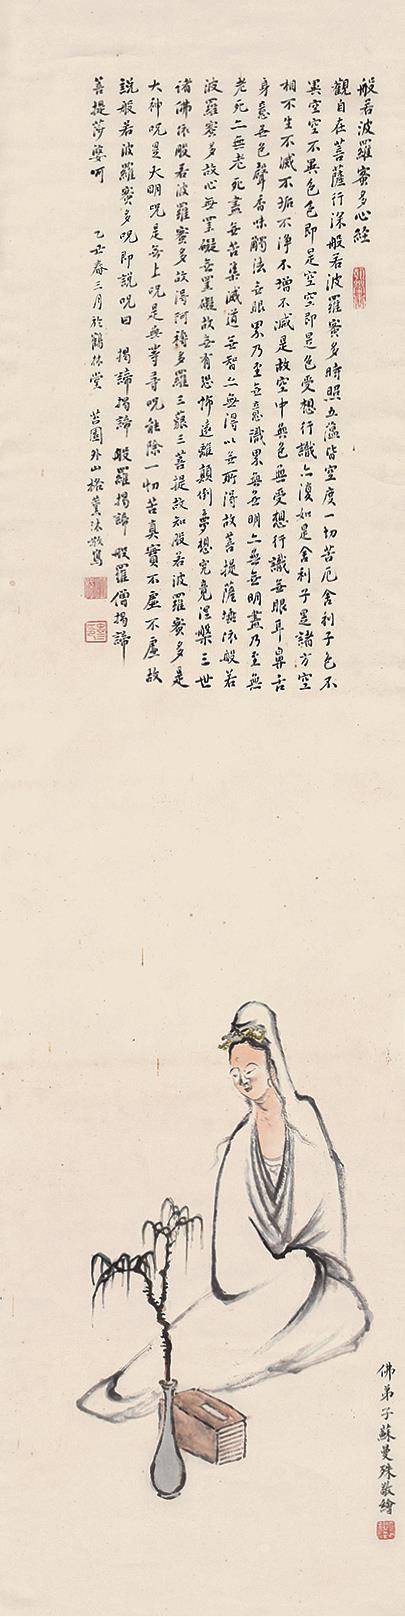 般若波羅蜜多心經
觀自在菩薩行深般若波羅蜜多時照五蘊皆空度一切苦厄舍利子色不
異空空不異色色即是空空即是色受想行識亦復如是舍利子是諸方空
相不生不滅不垢不淨不增不減是故空中無色無受想行識無眼耳鼻舌
身意無色聲香味觸法無眼界乃至無意識界無無明亦無無明盡乃至無
老死亦無老死盡無苦集滅道無智亦無得以無所得故菩提薩埵依般若
波羅蜜多故心無罣礙無罣礙故無有恐怖遠離顛倒夢想究竟涅槃三世
諸佛依般若波羅蜜多故得阿耨多羅三藐三菩提故知般若波羅蜜多是
大神咒是大明咒是無上咒是無等等咒能除一切苦真實不虛不虛故
說般若波羅蜜多咒即說咒曰 揭諦揭諦 般羅揭諦 般羅僧揭諦
菩提莎婆呵 乙丑春三月於鶴林堂 沐敬寫
佛弟子蘇曼殊敬繪